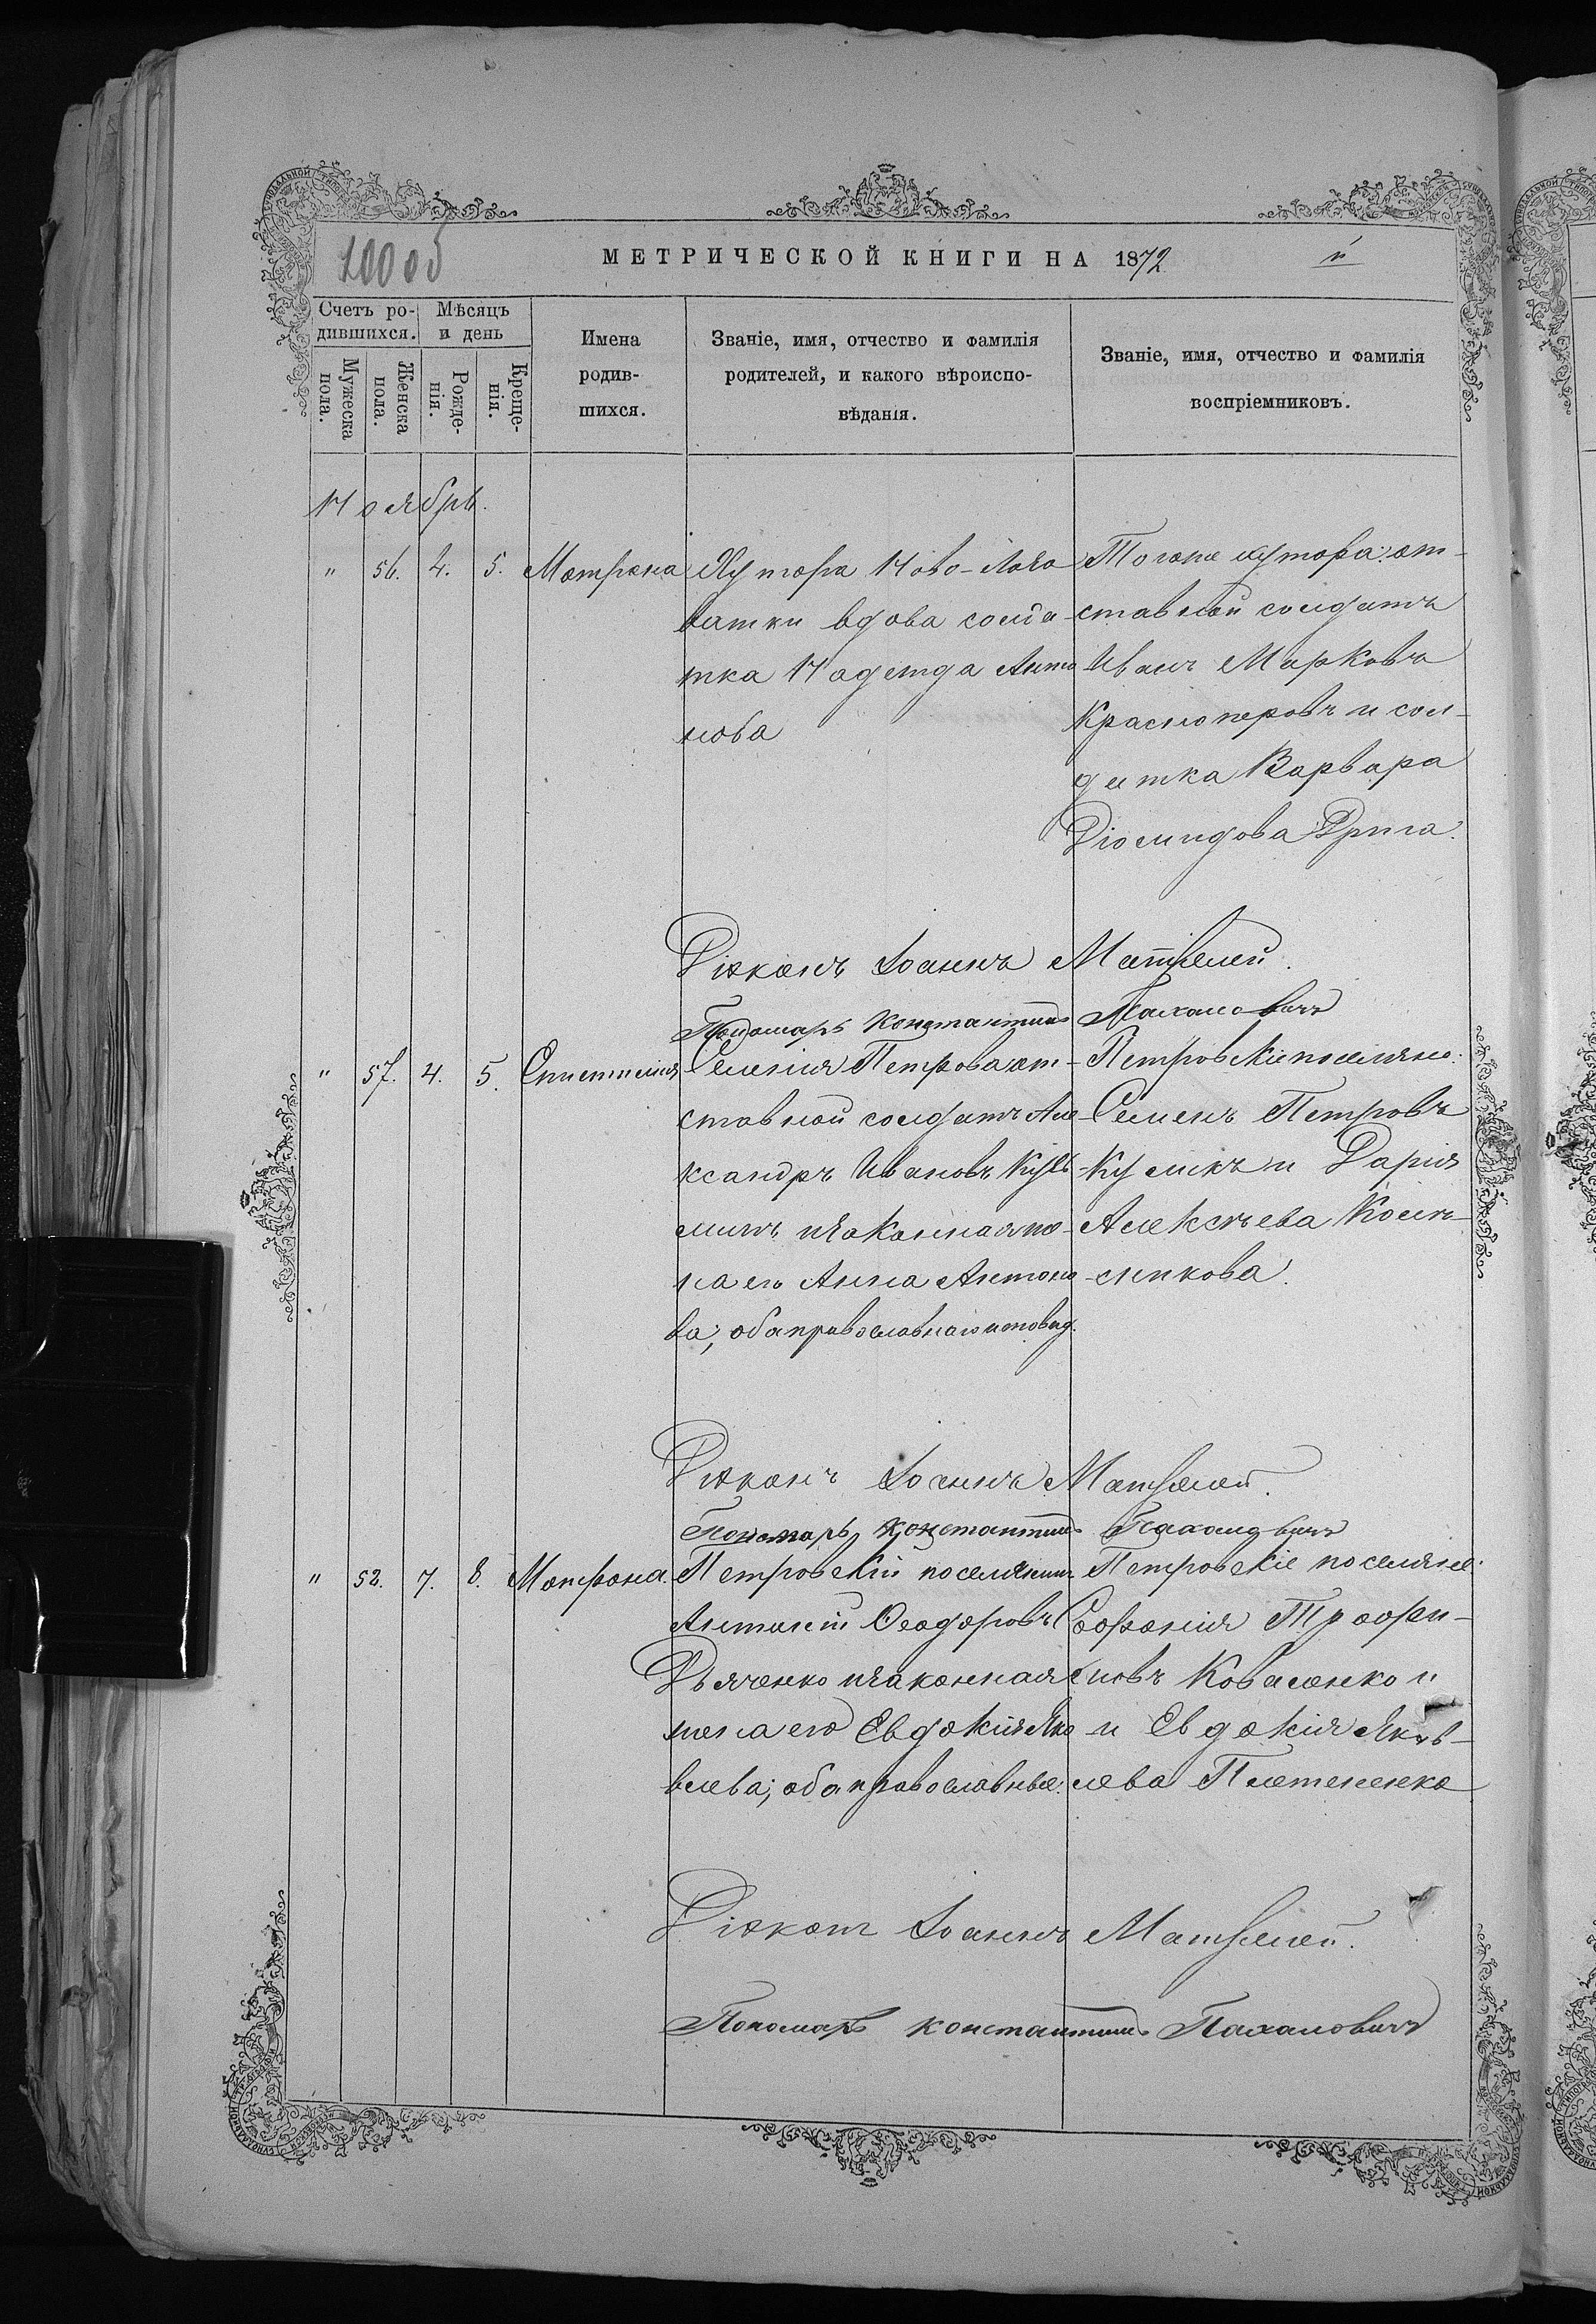 100 об
МЕТРИЧЕСКОЙ КНИГИ НА 1872
Счетъ ро-
дившихся.
Мѣсяцъ
и день
Мужеска
пола.
Женска
пола.
Рожде-
нія.
Креще-
нія.
Имена
родив-
шихся.
Званіе, имя, отчество и фамилія
родителей, и какого вѣроиспо-
вѣданія.
Званіе, имя, отчество и фамилія
воспріемниковъ.
Ноябрь.
" 56. 4. 5. Матрона
Хутора Ново-
ватки вдова солда-
тка Надежда Анто
нова
Того же хутора: от-
ставной солдатъ
Иванъ Марковъ
Красноперовъ и сол-
датка Варвара
Діомидова
Діаконъ Іоаннъ
Пономарь Константинъ Пахаловичъ
" 57. 4. 5.
Селенія Петрова от-
ставной солдатъ Але
ксандръ Ивановъ Кузь
минъ и законная же-
на его Анна Антоно
ва; оба православнаго исповѣд.
Петровскіе поселяне:
Семенъ Петровъ
Куликъ и Дарія
Алексѣева
Діаконъ Іоаннъ
Пономарь Константинъ Пахаловичъ
" 58. 7. 8. Матрона.
Петровскій поселянинъ
Антоній Ѳеодоровъ
Дьяченко и законная
жена его Евдокія Яко
влева; оба православные.
Петровскіе поселяне:
Софонія Трофи-
мовъ Коваленко и
и Евдокія Яков-
лева Плетененко
Діаконъ Іоаннъ
Пономарь Константинъ Пахаловичъ